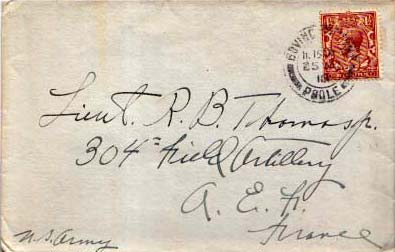 BOVING
11.15
25
18
POOLE
1½
Lieut. R. B. Thomas Jr.
304th Field Artillery
A. E. F.
France
U.S. Army